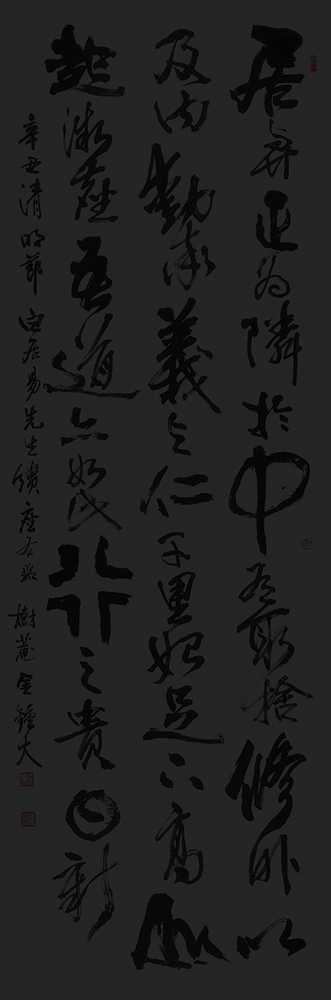 居與正為隣於中有取捨修外以
及內動率義与仁千里始足下高山
起微塵吾道亦如此行之貴日新
辛丑清明節 白居易先生續座右銘 樹菴 金鍾大